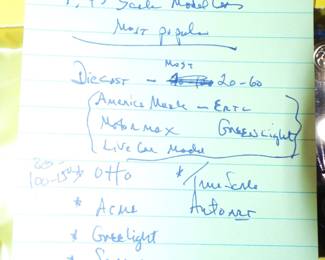 Scale Model Cars
Most popular
Most
Diecast - 20-60
America Muscle - ERTL
Motor max Greenlight
Live Car Model
100-150 * Otto * True Scale
* Acme Autoart
* Greenlight